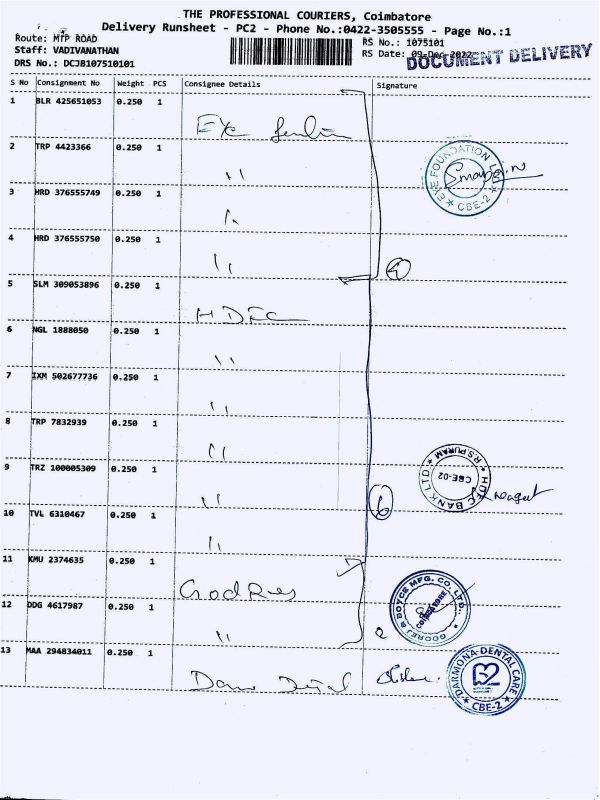 THE PROFESSIONAL COURIERS, Coimbatore
Delivery Runsheet - PC2 - Phone No.:0422-3505555 - Page No.:1
Route: MTP ROAD
RS No.: 1075101
Staff: VADIVANATHAN
RS Date: 09-Dec-2022
DOCUMENT DELIVERY
DRS No.: DCJB107510101
S No Consignment No Weight PCS Consignee Details Signature
1 BLR 425651053 0.250 1
Eye
2 TRP 4423366 0.250 1
"
EYE FOUNDATION LTD * CBE-2 *
3 HRD 376555749 0.250 1
"
4 HRD 376555750 0.250 1
"
4
5 SLM 309053896 0.250 1
HDFC
6 NGL 1888050 0.250 1
"
7 IXM 502677736 0.250 1
"
8 TRP 7832939 0.250 1
"
9 TRZ 100005309 0.250 1
"
* HDFC BANK LTD. * RSPURAM
CBE-02
6
10 TVL 6310467 0.250 1
"
11 KMU 2374635 0.250 1
Godrej
12 DDG 4617987 0.250 1
"
2
GODREJ & BOYCE MFG. CO. LTD.
COIMBATORE
13 MAA 294834011 0.250 1
Dental
DARMONA DENTAL CARE
* CBE-2 *